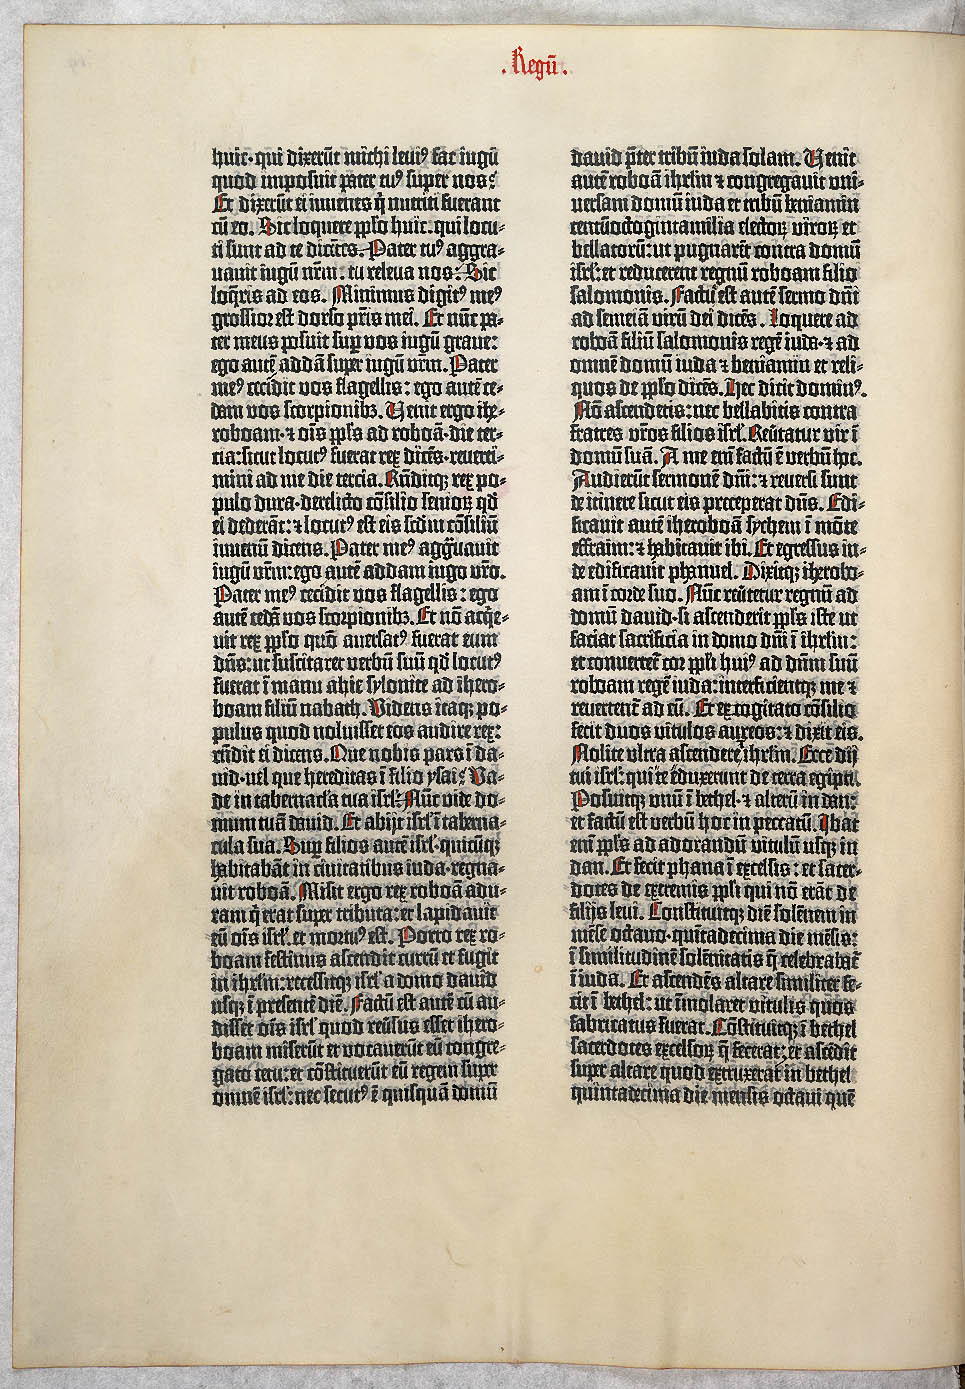 . Regū .
huic · qui dixerūt michi leui⁹ fac iugū
quod imposuit pater tu⁹ super nos:
Et dixerūt ei iuuenes q̄ nutriti fuerant
cū eo. Sic loquere pp̄lo huic. qui locu-
ti sunt ad te dicētes. Pater tu⁹ aggra-
uauit iugū nr̄m: tu releua nos: Sic
loq̄ris ad eos. Minimus digit⁹ me⁹
grossior est dorso pr̄is mei. Et nūc pa-
ter meus posuit sup̲ vos iugū graue:
ego autē addā super iugū vr̄m. Pater
me⁹ cecidit vos flagellis: ego autē ce-
dam vos scorpionibꝫ. Venit ergo ihe-
roboam · ⁊ oīs pp̄ls ad roboā · die ter-
cia: sicut locut⁹ fuerat rex dicēs · reuerti-
mini ad me die tercia. Rn̄ditqꝫ rex po-
pulo dura · derelicto cōsilio senioꝝ qd̄
ei dederāt: ⁊ locut⁹ est eis scd̄m cōsiliū
iuuenū dicens. Pater me⁹ agg̃uauit
iugū vr̄m: ego autē addam iugo vr̄o.
Pater me⁹ cecidit vos flagellis: ego
autē cedā vos scorpionibꝫ. Et nō acq̄e-
uit rex pp̄lo qm̄ auersat⁹ fuerat eum
dn̄s: ut suscitaret verbū suū qd̄ locut⁹
fuerat ī manu ahie sylonite ad ihero-
boam filiū nabath. Videns itaqꝫ po-
pulus quod noluisset eos audire rex:
rn̄dit ei dicens. Que nobis pars ī da-
uid · uel que hereditas ī filio ysai: Va-
de in tabernacl̄a tua isrl̄: Nūc vide do-
mum tuā dauid. Et abijt isrl̄ ī taberna-
cula sua. Sup̲ filios autē isrl̄ · quicūqꝫ
habitabāt in ciuitatibus iuda · regna-
uit roboā. Misit ergo rex roboā adu-
ram q̄ erat super tributa: et lapidauit
eū oīs isrl̄. et mortu⁹ est. Porro rex ro-
boam festinus ascendit currū et fugit
in ihrl̄m: recessitqꝫ isrl̄ a domo dauid
usqꝫ ī presentē diē. Factū est autē cū au-
disset oīs isrl̄ quod reūsus esset ihero-
boam miserūt et vocauerūt eū congre-
gato cetu: et cōstituerūt eū regem super
omnē isrl̄: nec secut⁹ ē quisquā domū
dauid p̄ter tribū iuda solam. Venit
autē roboā ihrl̄m ⁊ congregauit uni-
uersam domū iuda et tribū beniamin
centūoctogintamilia electoꝝ viroꝝ et
bellatorū: ut pugnarēt contra domū
isrl̄: et reducerent regnū roboam filio
salomonis. Factꝰ est autē sermo dn̄i
ad semeiā virū dei dicēs. Loquere ad
roboā filiū salomonis regē iuda · ⁊ ad
omnē domū iuda ⁊ beniamin et reli-
quos de pp̄lo dicēs. Hec dicit domin⁹.
Nō ascendetis: nec bellabitis contra
fratres vr̄os filios isrl̄. Reūtatur vir ī
domū suā. A me enī factū ē verbū hoc.
Audierūt sermonē dn̄i: ⁊ reuersi sunt
de itinere sicut eis preceperat dn̄s. Edi-
ficauit autē iheroboā sychem ī mōte
effraim: ⁊ habitauit ibi. Et egressus in-
de edificauit phanuel. Dixitqꝫ iherobo-
am ī corde suo. Nūc reūtetur regnū ad
domū dauid · si ascenderit pp̄ls iste ut
faciat sacrificia in domo dn̄i ī ihrl̄m:
et conuertet̄ cor pp̄li hui⁹ ad dn̄m suū
roboam regē iuda: interficientqꝫ me ⁊
reuertent̄ ad eū. Et excogitato cōsilio
fecit duos vitulos aureos: ⁊ dixit eis.
Nolite ultra ascendere ī ihrl̄m. Ecce dij
tui isrl̄: qui te eduxerunt de terra egipti.
Posuitqꝫ unū ī bethel · ⁊ alterū in dan:
et factū est verbū hoc in peccatū. Ibat
enī pp̄ls ad adorandū vitulū usqꝫ in
dan. Et fecit phana ī excelsis: et sacer-
dotes de extremis pp̄li qui nō erāt de
filijs leui. Constituitqꝫ diē solēnem in
mēse octauo · quītadecima die mēsis:
ī similitudinē solēnitatis q̄ celebrabat̄
ī iuda. Et ascendēs altare similiter fe-
cit ī bethel: ut īmolaret vitulis quos
fabricatus fuerat. Cōstituitqꝫ ī bethel
sacerdotes excelsoꝝ q̄ fecerat: et ascēdit
super altare quod extruxerat in bethel
quintadecima die mensis octaui quē